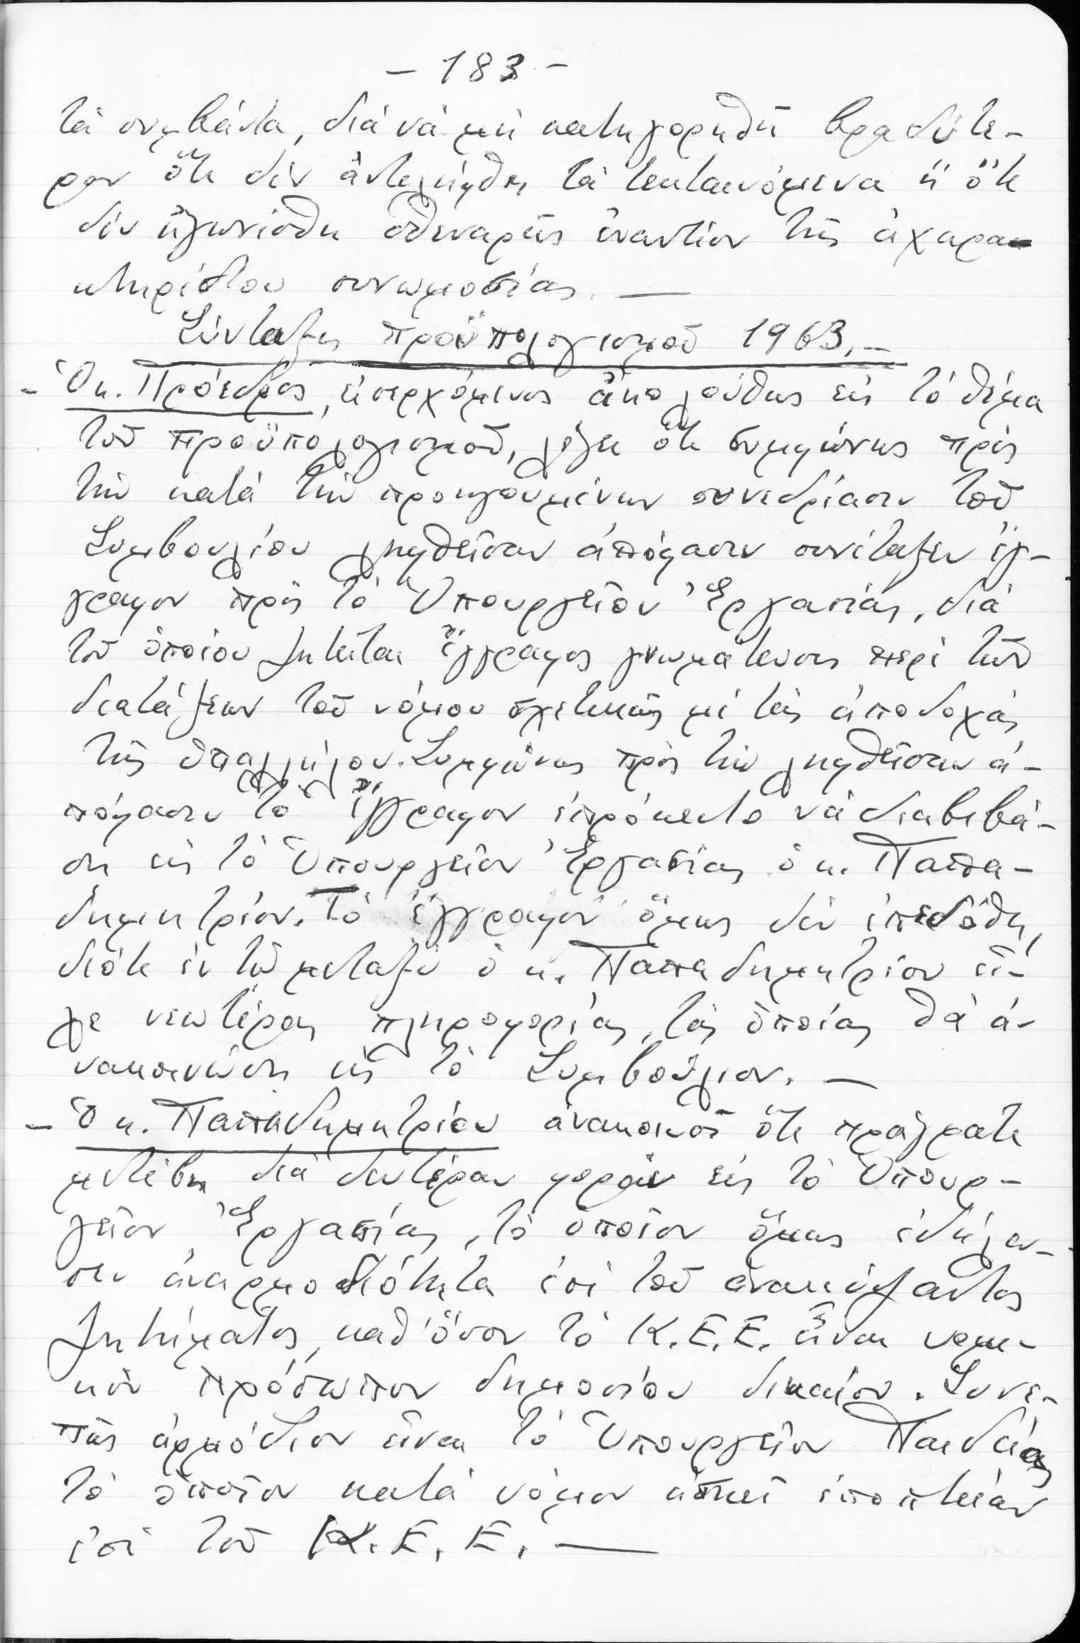 - 183 -
τὰ συμβάντα, διά νά μή κατηγορηθῇ βραδύτε-
ρον ὅτι δέν ἀντελήφθη τά τεκταινόμενα ἤ ὅτι
δέν ἠγωνίσθη σθεναρῶς ἐναντίον τῆς ἀχαρα-
κτηρίστου συνωμοσίας. —
Σύνταξις προϋπολογισμοῦ 1963.-
- Ὁ κ. Πρόεδρος, εἰσερχόμενος ἀκολούθως εἰς τό θέμα
τοῦ προϋπολογισμοῦ, λέγει ὅτι συμφώνως πρός
τήν κατά τήν προηγουμένην συνεδρίασιν τοῦ
Συμβουλίου ληφθεῖσαν ἀπόφασιν συνέταξεν ἔγ-
γραφον πρός τό Ὑπουργεῖον Ἐργασίας, διά
τοῦ ὁποίου ζητεῖται ἔγγραφος γνωμάτευσις περί τῶν
διατάξεων τοῦ νόμου σχετικῶς μέ τάς ἀποδοχάς
τῆς ὑπαλλήλου. Συμφώνως πρός τήν ληφθεῖσαν ἀ-
πόφασιν τό ἔγγραφον ἐπρόκειτο νά διαβιβά-
σῃ εἰς τό Ὑπουργεῖον Ἐργασίας ὁ κ. Παπα-
δημητρίου. Τό ἔγγραφον ὅμως δέν ἐπεδόθη,
διότι ἐν τῷ μεταξύ ὁ κ. Παπαδημητρίου εἶ-
χε νεωτέρας πληροφορίας, τάς ὁποίας θά ἀ-
νακοινώσῃ εἰς τό Συμβούλιον. —
- Ὁ κ. Παπαδημητρίου ἀνακοινοῖ ὅτι πράγματι
μετέβη διά δευτέραν φοράν εἰς τό Ὑπουρ-
γεῖον Ἐργασίας, τό ὁποῖον ὅμως ἐδήλω-
σεν ἀναρμοδιότητα ἐπί τοῦ ἀνακύψαντος
ζητήματος, καθ' ὅσον τό Κ.Ε.Ε. εἶναι νομι-
κόν πρόσωπον δημοσίου δικαίου. Συνε-
πῶς ἁρμόδιον εἶναι τό Ὑπουργεῖον Παιδείας
τό ὁποῖον κατά νόμον ἀσκεῖ ἐποπτείαν
ἐπί τοῦ Κ.Ε.Ε. —